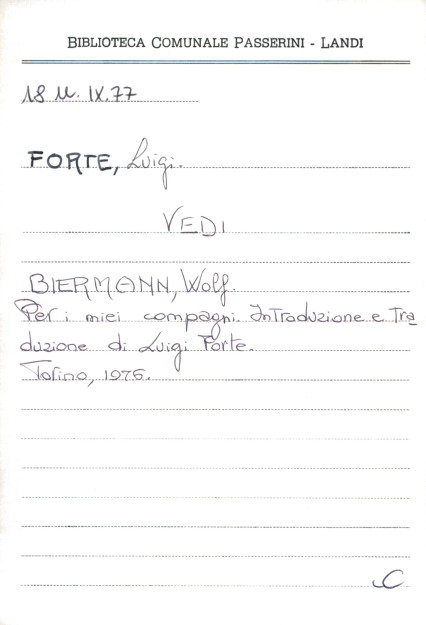 BIBLIOTECA COMUNALE PASSERINI - LANDI
18 M. IX.77
FORTE, Luigi.
VEDI
BIERMANN, Wolf.
Per i miei compagni. Introduzione e tra
duzione di Luigi Forte.
Torino, 1976.
C